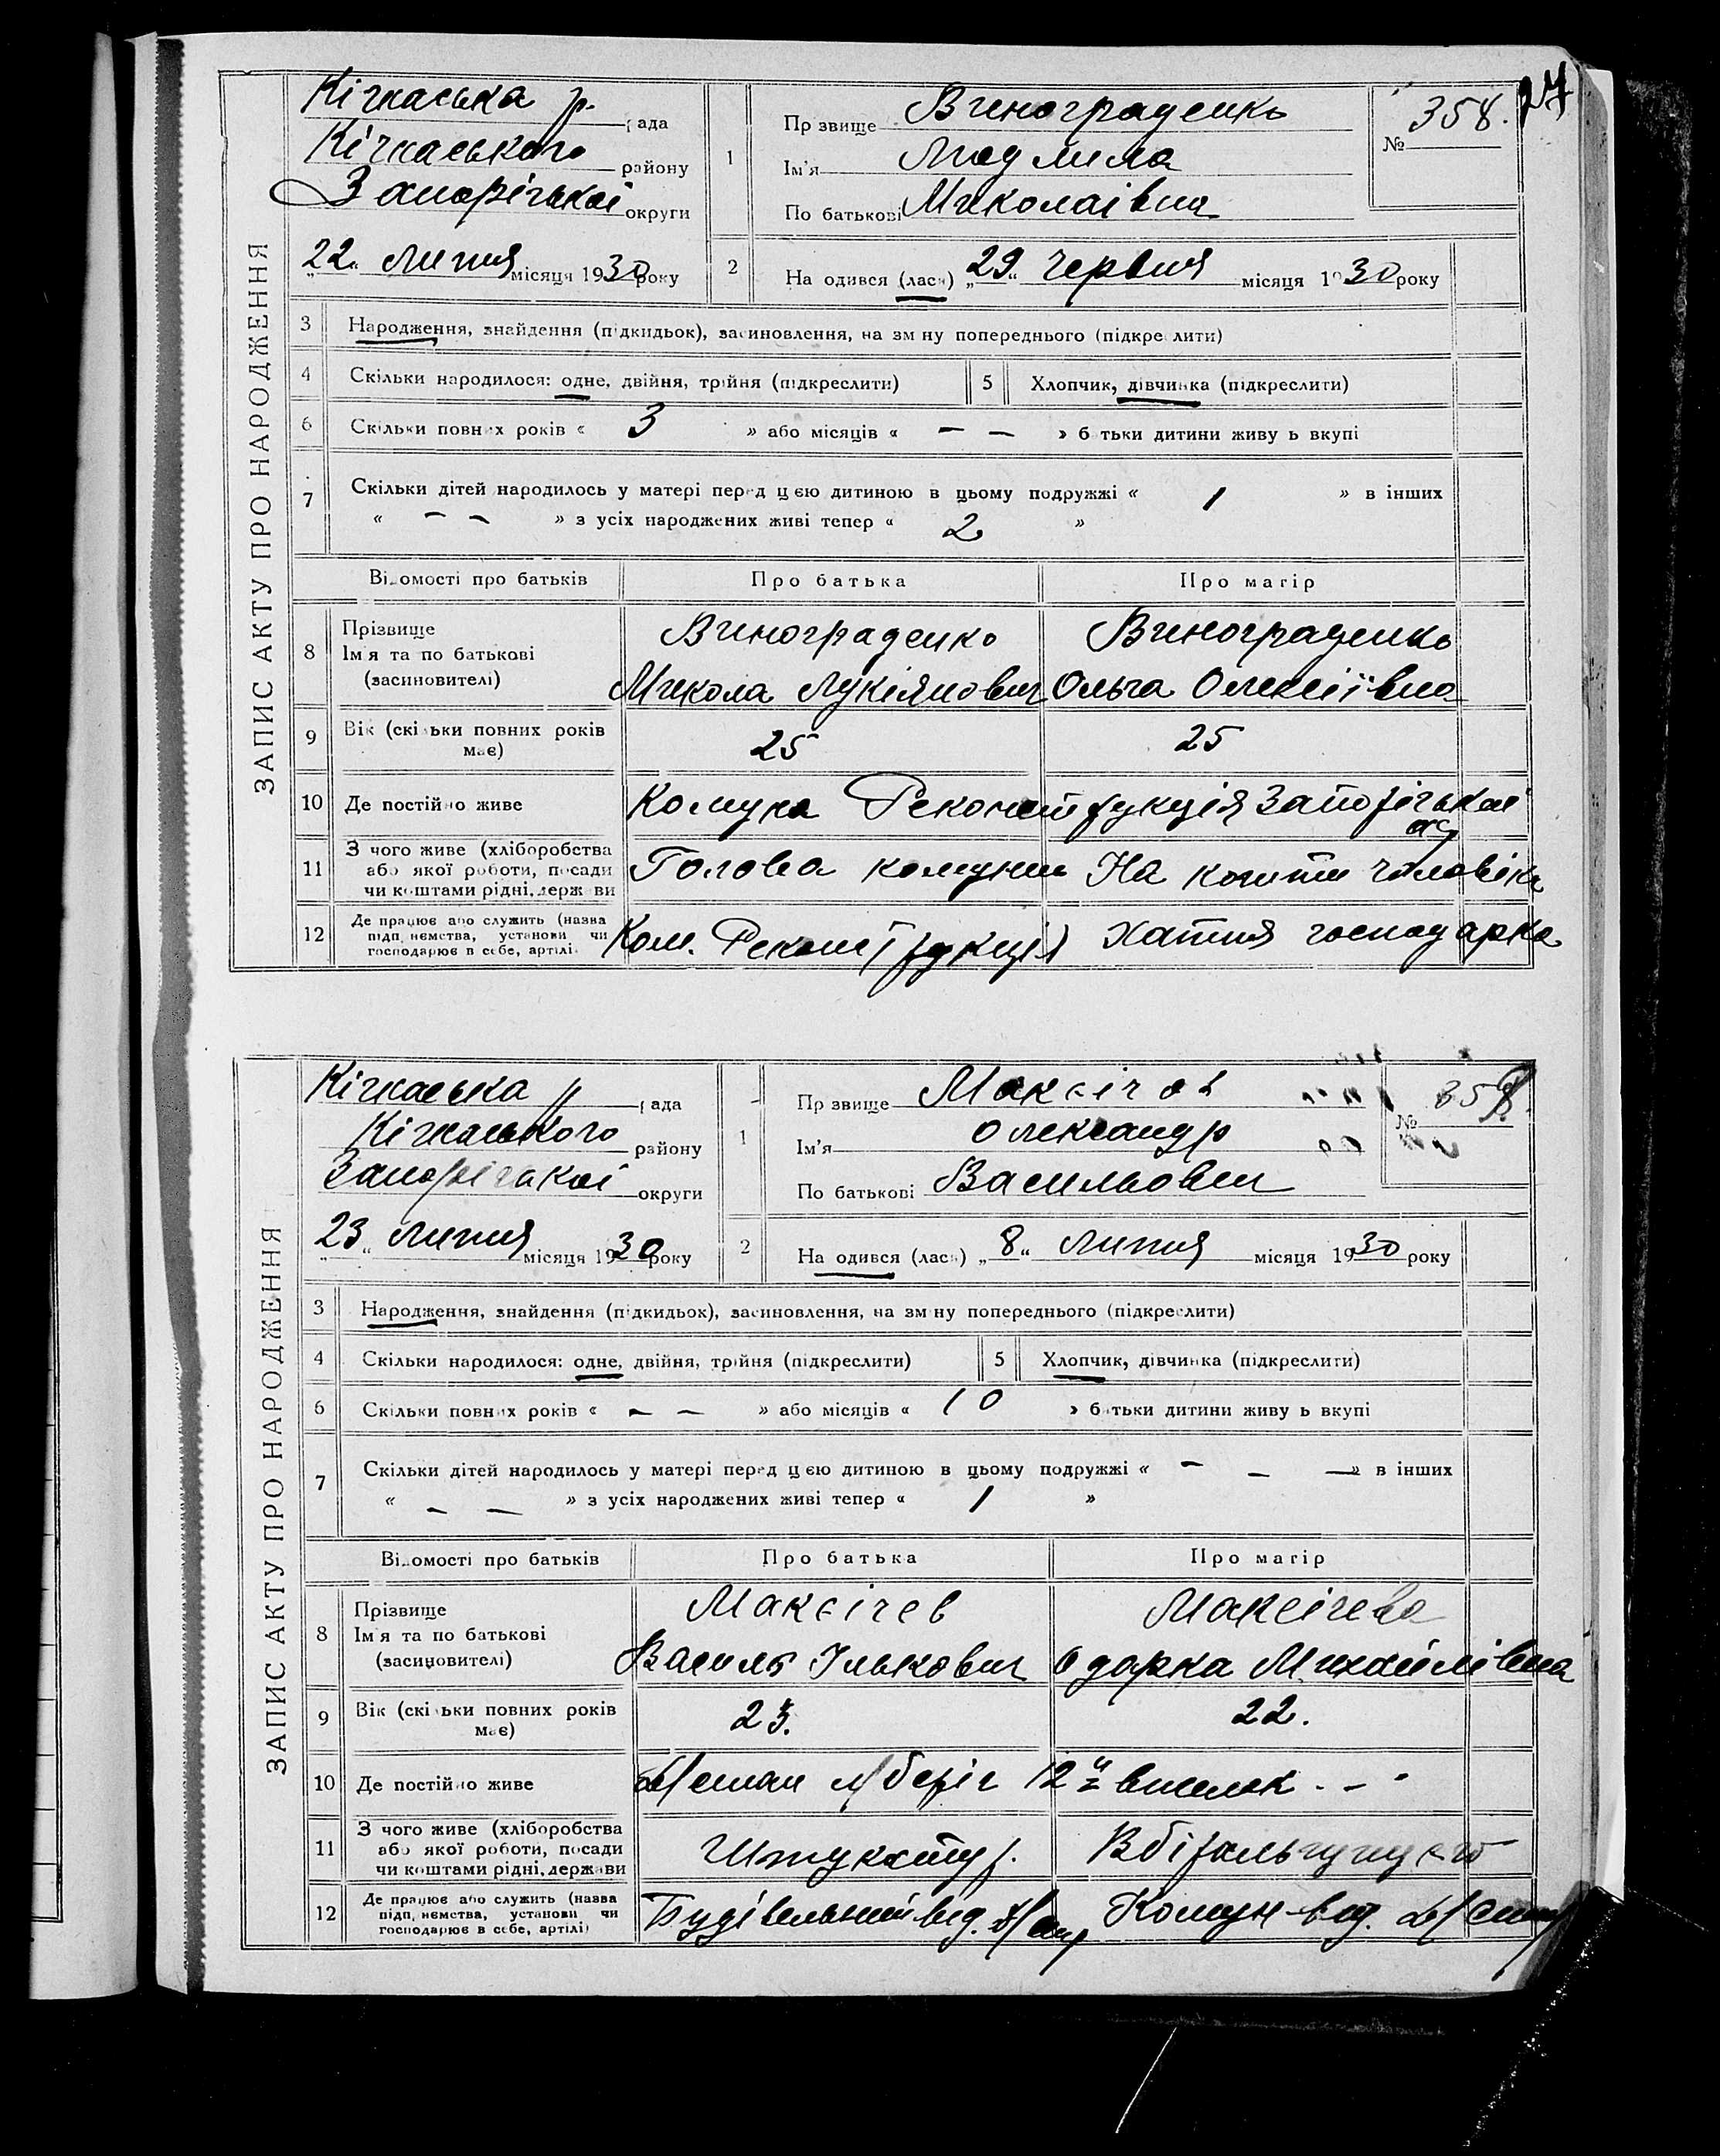 27
ЗАПИС АКТУ ПРО НАРОДЖЕННЯ
Кічкаська р. рада
Кічкаського району
Запорізької округи
„22“ липня місяця 1930 року
1
Прізвище Винограденко
Ім'я Людмила
По батькові Миколаівна
№ 358.
2 На одився (лася) „29“ червня місяця 1930 року
3 Народження, знайдення (підкидьок), засиновлення, на зміну попереднього (підкреслити)
4 Скільки народилося: одне, двійня, трійня (підкреслити) 5 Хлопчик, дівчинка (підкреслити)
6 Скільки повних років « 3 » або місяців « — — » батьки дитини живуть вкупі
7 Скільки дітей народилось у матері перед цією дитиною в цьому подружжі « 1 » в інших
« — — » з усіх народжених живі тепер « 2 »
Відомості про батьків Про батька Про матір
8 Прізвище Ім'я та по батькові (засиновителі)
Винограденко Винограденко
Микола Лукіянович Ольга Олексіївна
9 Вік (скільки повних років має) 25 25
10 Де постійно живе Комуна Реконструкція Запорізької
11 З чого живе (хліборобства або якої роботи, посади чи коштами рідні, держави Голова комуни На кошти чоловіка
12 Де працює або служить (назва підприємства, установи чи господарює в себе, артілі) Ком. Реконструкція Хатня господарка
ЗАПИС АКТУ ПРО НАРОДЖЕННЯ
Кічкаська р рада
Кічкаського району
Запорізької округи
„23“ липня місяця 1930 року
1
Прізвище Максічев
Ім'я Олександр
По батькові Васильович
№ 359.
2 На одився (лася) „8“ липня місяця 1930 року
3 Народження, знайдення (підкидьок), засиновлення, на зміну попереднього (підкреслити)
4 Скільки народилося: одне, двійня, трійня (підкреслити) 5 Хлопчик, дівчинка (підкреслити)
6 Скільки повних років « — — » або місяців « 10 » батьки дитини живуть вкупі
7 Скільки дітей народилось у матері перед цією дитиною в цьому подружжі « — — — » в інших
« — — » з усіх народжених живі тепер « 1 »
Відомості про батьків Про батька Про матір
8 Прізвище Ім'я та по батькові (засиновителі)
Максічев Максічева
Василь Ількович Одарка Михайлівна
9 Вік (скільки повних років має) 23. 22.
10 Де постійно живе л/беріг 12й виселок
11 З чого живе (хліборобства або якої роботи, посади чи коштами рідні, держави Штукатур.
12 Де працює або служить (назва підприємства, установи чи господарює в себе, артілі) Будівельний від. Комун-від.